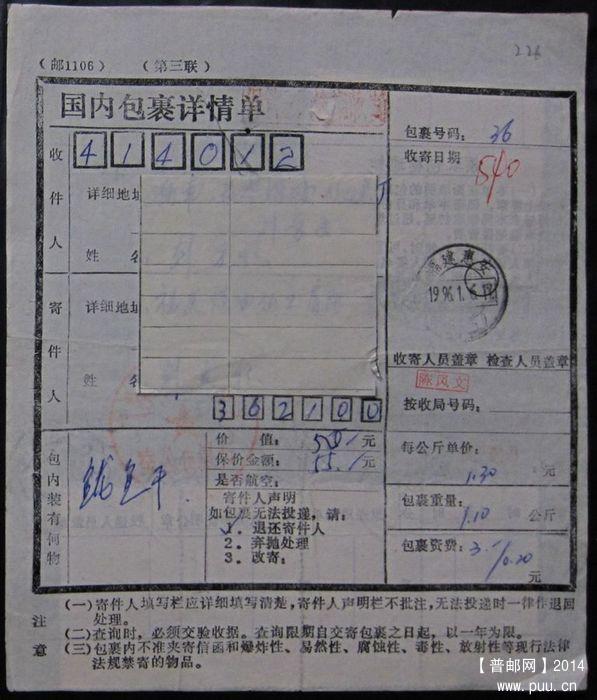 226
（邮1106） （第三联）
国内包裹详情单
包裹号码： 36
收寄日期 540
收件人
414012
详细地址
姓名
寄件人
详细地址
姓名
362100
福建惠安
1996.1.6.18
收寄人员盖章 检查人员盖章
陈凤文
按收局号码：
每公斤单价：
1.30 元
包裹重量：
1.10 公斤
包裹资费： 3.-/0.20 元
包内装有何物
价值： 50.- 元
保价金额： 55.- 元
是否航空：
寄件人声明
如包裹无法投递，请：
1．退还寄件人
2．弃抛处理
3．改寄：
注意
(一)寄件人填写栏应详细填写清楚，寄件人声明栏不批注，无法投递时一律作退回处理。
(二)查询时，必须交验收据。查询限期自交寄包裹之日起，以一年为限。
(三)包裹内不准夹寄信函和爆炸性、易然性、腐蚀性、毒性、放射性等现行法律法规禁寄的物品。
【普邮网】2014
www.puu.cn